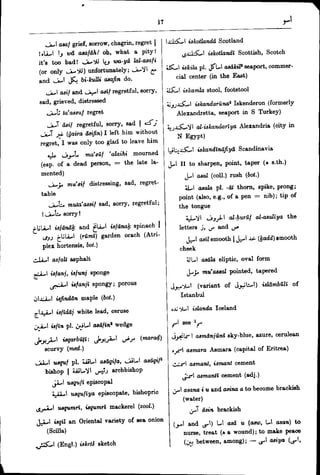 17
أسر
أسف asaf grief, sorrow, chagrin, regret |
!وا أسفاه wā asafāh! oh, what a pity!
it's too bad! ويا للأسف wa-yā lal-asafi
(or only للأسف) unfortunately; بكل أسف bi-kulli asafin do.
أسف asif and أسيف asīf regretful, sorry,
sad, grieved, distressed
تأسف ta'assuf regret
آسف āsif regretful, sorry, sad | تركه
غير آسف (ḡaira āsifin) I left him without
regret, I was only too glad to leave him
مأسوف عليه ma'sūf 'alaihi mourned
(esp. of a dead person, = the late la-
mented)
مؤسف mu'sif distressing, sad, regret-
table
متأسف muta'assif sad, sorry, regretful;
!متأسف sorry!
اسفاناخ isfānāḵ and اسفاناخ isfānāḵ spinach |
اسفاناخ رومي (rūmī) garden orach (Atri-
plex hortensis, bot.)
اسفلت asfalt asphalt
اسفنج isfanj, isfunj sponge
اسفنجي isfanjī spongy; porous
اسفندان isfindān maple (bot.)
اسفيداج isfīdāj white lead, ceruse
اسفين isfīn pl. اسافين asāfīn² wedge
اسقربوط isqarbūṭ: مرض الاسقربوط (maraḍ)
scurvy (med.)
اسقف usquf pl. اساقفة asāqifa, اساقف asāqif²
bishop | رئيس الاساقفة archbishop
اسقفي usqufī episcopal
اسقفية usqufīya episcopate, bishopric
اسقمري usqumrī, isqumrī mackerel (zool.)
اسقيل isqīl an Oriental variety of sea onion
(Scilla)
اسكرل (Engl.) iskrīl sketch
اسكتلندا iskotlandā Scotland
اسكتلندي iskotlandī Scottish, Scotch
اسكلة iskila pl. اساكل asākil² seaport, commer-
cial center (in the East)
اسكملة iskamla stool, footstool
اسكندرونة iskandarūna² Iskenderon (formerly
Alexandretta, seaport in S Turkey)
الاسكندرية al-iskandarīya Alexandria (city in
N Egypt)
اسكندينافيا iskandināfiyā Scandinavia
أسل II to sharpen, point, taper (ه s.th.)
أسل asal (coll.) rush (bot.)
أسلة asala pl. -āt thorn, spike, prong;
point (also, e.g., of a pen = nib); tip of
the tongue
الحروف الاسلية al-ḥurūf al-asalīya the
letters ز, س and ص
أسيل asīl smooth | خد أسيل (ḵadd) smooth
cheek
أسالة asāla eliptic, oval form
مؤسل mu'assal pointed, tapered
اسلامبول (variant of استانبول) islāmbūlī of
Istanbul
اسلندا islanda Iceland
اسم see ¹سم
اسمانجوني asmānjūnī sky-blue, azure, cerulean
اسمرا asmara Asmara (capital of Eritrea)
اسمنت asmant, ismant cement
اسمنتي asmantī cement (adj.)
أسن asana i u and asina a to become brackish
(water)
آسن āsin brackish
(أسو and أسى) أسا asā u (asw, أسا asan) to
nurse, treat (ه a wound); to make peace
(بين between, among); — أسي asiya (أسى